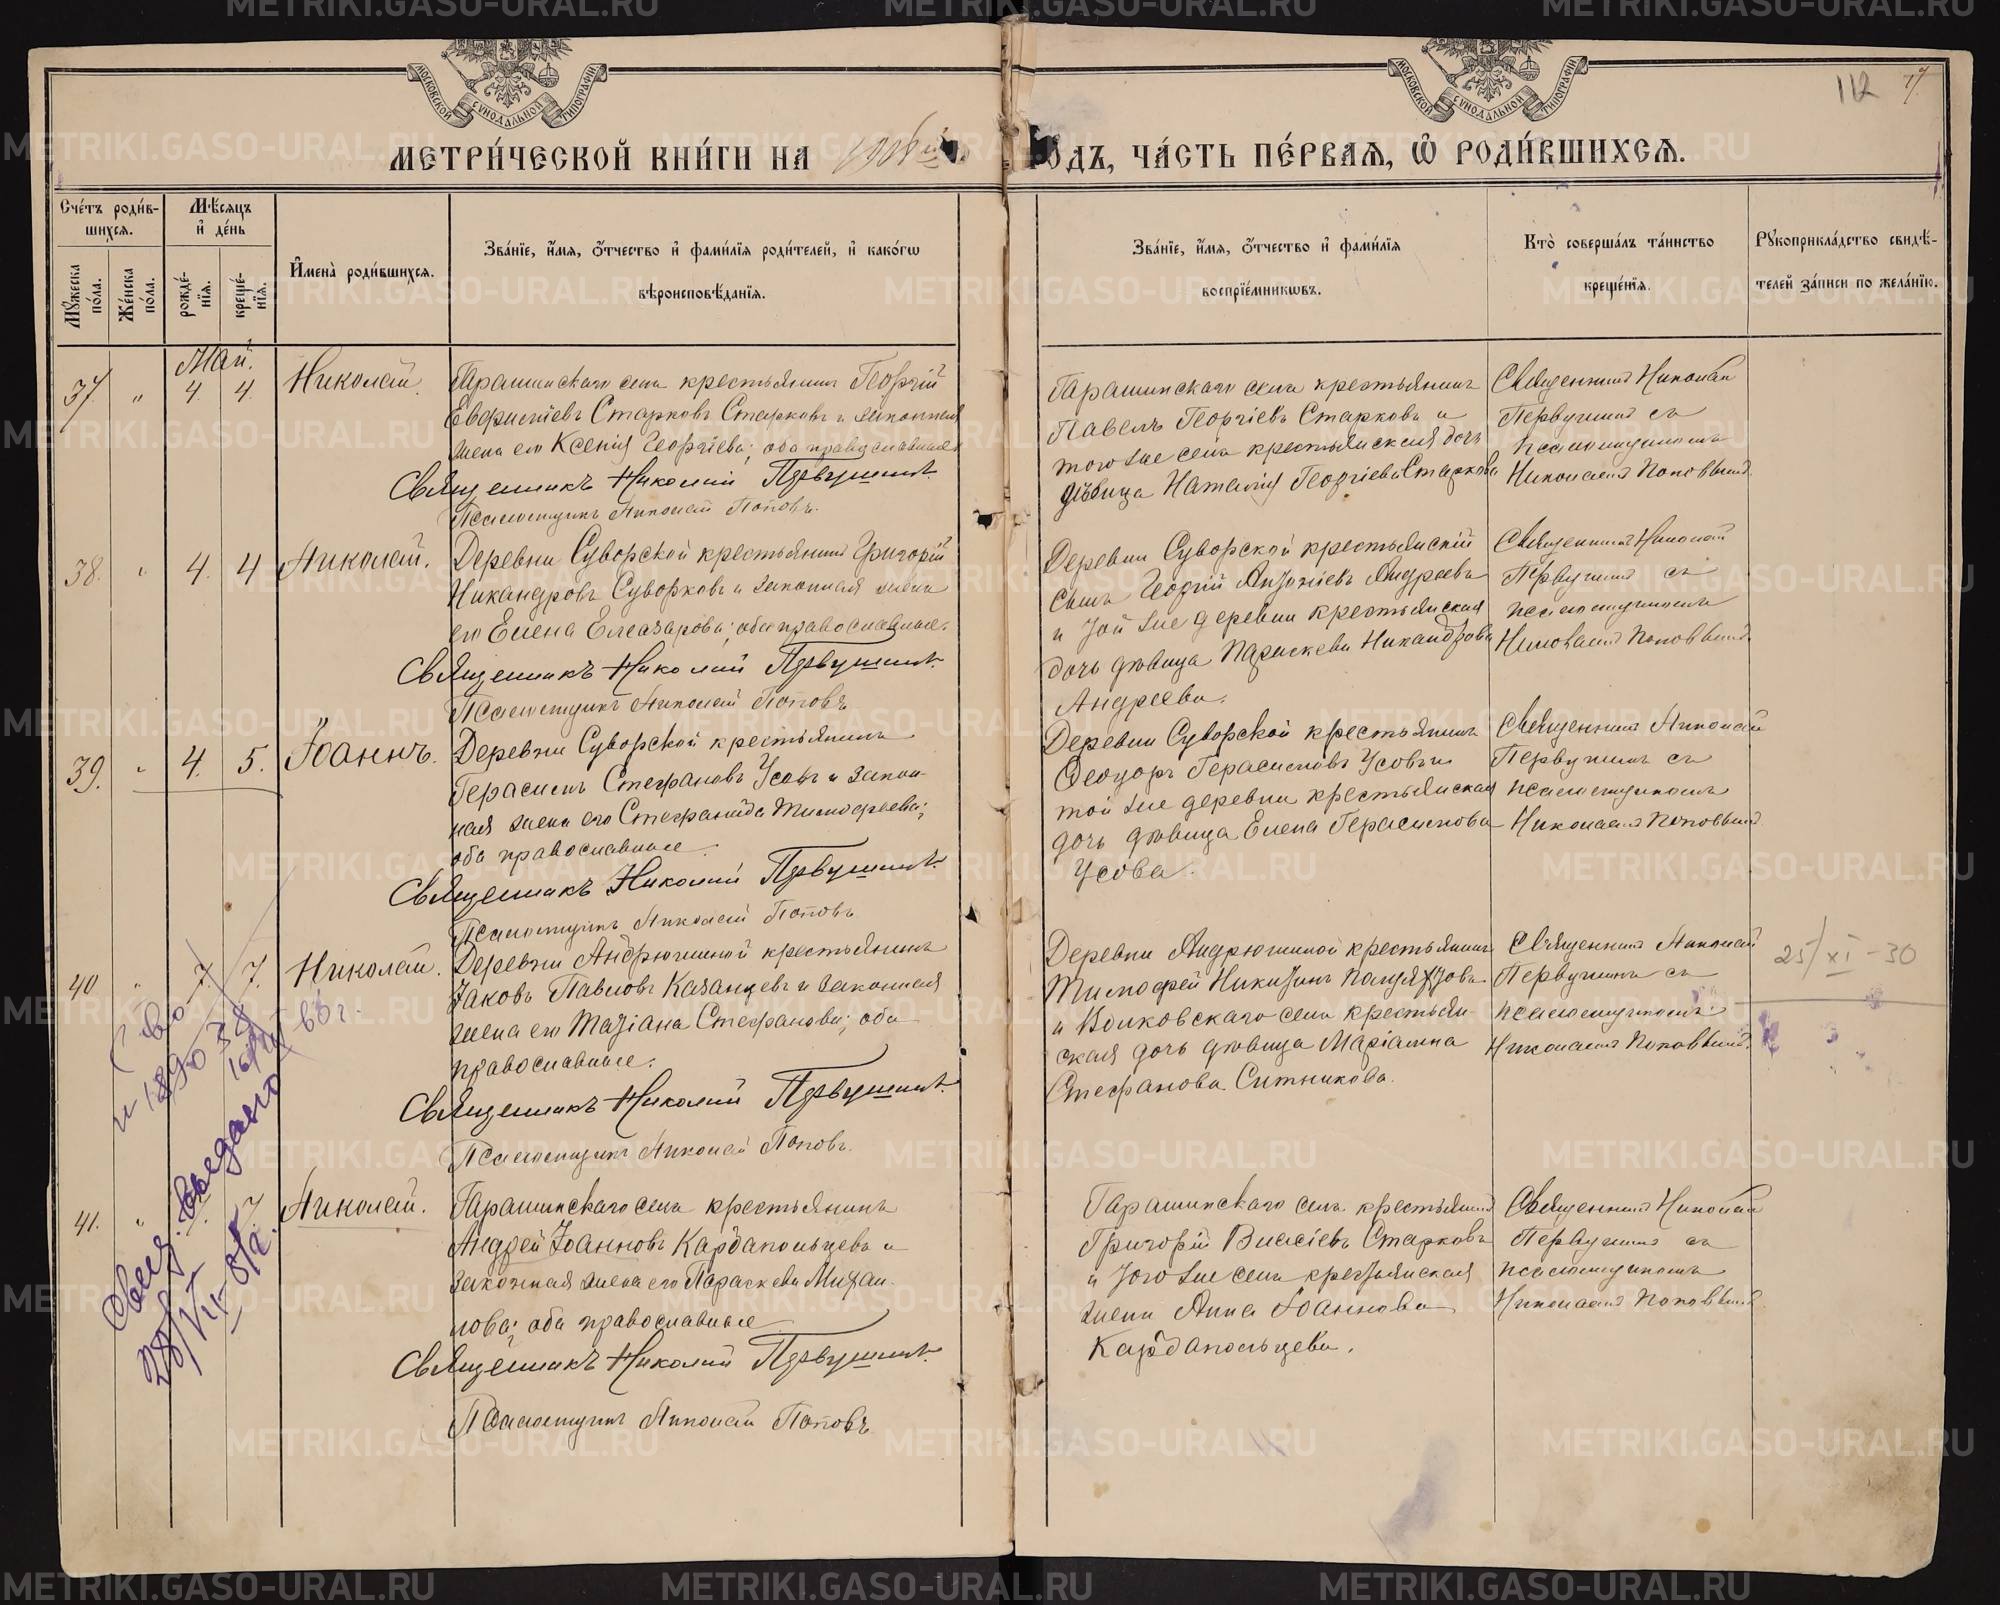 МОСКОВСКОЙ СѴНОДАЛЬНОЙ ТИПОГРАФІИ
МОСКОВСКОЙ СѴНОДАЛЬНОЙ ТИПОГРАФІИ
112
МЕТРИ́ЧЕСКОЙ КНИ́ГИ НА 1906й ГО́ДЪ, ЧА́СТЬ ПЕ́РВАЯ, Ѡ҆ РОДИ́ВШИХСЯ.
Сче́тъ роди́вшихся.
Мꙋ́жеска по́ла.
Же́нска по́ла.
Мѣ́сяцъ и҆ де́нь
рожде́нїя.
креще́нїя.
И҆мена̀ роди́вшихся.
Зва́нїе, и҆́мя, ѻ҆́тчество и҆ фами́лїя роди́телей, и҆ како́гѡ вѣроисповѣ́данїя.
Зва́нїе, и҆́мя, ѻ҆́тчество и҆ фами́лїя воспрїе́мникѡвъ.
Кто̀ соверша́лъ та́инство креще́нїя.
Рꙋкоприкла́дство свидѣ́телей за́писи по жела́нїю.
Май.
37 " 4. 4. Николай
Гарашинскаго села крестьянинъ Георгій
Старковъ и законная
жена его Ксенія Георгіева; оба православные.
Священникъ Николай Первушинъ.
Псаломщикъ Николай Поповъ.
Гарашинскаго села крестьянинъ
Павелъ Георгіевъ Старковъ и
того же села крестьянская дочь
дѣвица Наталія Георгіева Старкова
Священникъ Николай
Первушинъ съ
псаломщикомъ
Николаемъ Поповымъ.
38. " 4. 4 Николай.
Деревни Суворской крестьянинъ Григорій
Никандровъ Суворковъ и законная жена
его Елена Елеазарова; оба православные.
Священникъ Николай Первушинъ.
Псаломщикъ Николай Поповъ.
Деревни Суворской крестьянскій
сынъ Георгій Антоніевъ Андреевъ
и той же деревни крестьянская
дочь дѣвица Параскева Никандрова
Андреева.
Священникъ Николай
Первушинъ съ
псаломщикомъ
Николаемъ Поповымъ.
39. " 4. 5. Іоаннъ.
Деревни Суворской крестьянинъ
Герасимъ Стефановъ Усовъ и закон-
ная жена его Стефанида Тимофеева;
оба православные.
Священникъ Николай Первушинъ.
Псаломщикъ Николай Поповъ
Деревни Суворской крестьянинъ
Ѳеодоръ Герасимовъ Усовъ и
той же деревни крестьянская
дочь дѣвица Елена Герасимова
Усова.
Священникъ Николай
Первушинъ съ
псаломщикомъ
Николаемъ Поповымъ
40 " 7. 7. Николай.
Деревни Андрюшиной крестьянинъ
Іаковъ Павловъ Казанцевъ и законная
жена его Татіана Стефанова; оба
православные.
Священникъ Николай Первушинъ.
Псаломщикъ Николай Поповъ.
Деревни Андрюшиной крестьянинъ
Тимофей Никитинъ
и Волковскаго села крестьян-
ская дочь дѣвица Маріамна
Стефанова Ситникова.
Священникъ Николай
Первушинъ съ
псаломщикомъ
Николаемъ Поповымъ.
25/XI-30
41. " 7 Николай.
Гарашинскаго села крестьянинъ
Андрей Іоанновъ Кардапольцевъ и
законная жена его Параскева Михаи-
лова; оба православные
Священникъ Николай Первушинъ.
Псаломщикъ Николай Поповъ
Гарашинскаго села крестьянинъ
Григорій Власіевъ Старковъ
и того же села крестьянская
жена Анна Іоаннова
Кардапольцева.
Священникъ Николай
Первушинъ съ
псаломщикомъ
Николаемъ Поповымъ
METRIKI.GASO-URAL.RU